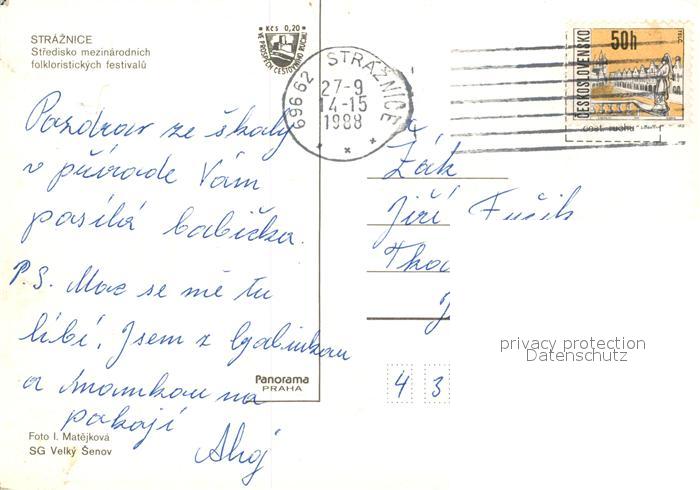 STRÁŽNICE
Středisko mezinárodních
folkloristických festivalů
Kčs 0,20
VE PROSPĚCH CESTOVNÍHO RUCHU
696 62 STRÁŽNICE
27-9
14-15
1988
50h
ČESKOSLOVENSKO
Pozdrav ze školy
v přírodě Vám
posílá babička.
P.S. Moc se mě tu
líbí. Jsem z
a mamkou na
pokoji
Ahoj
Žák
Jiří Fučík
4 3
Panorama
PRAHA
Foto I. Matějková
SG Velký Šenov
privacy protection
Datenschutz